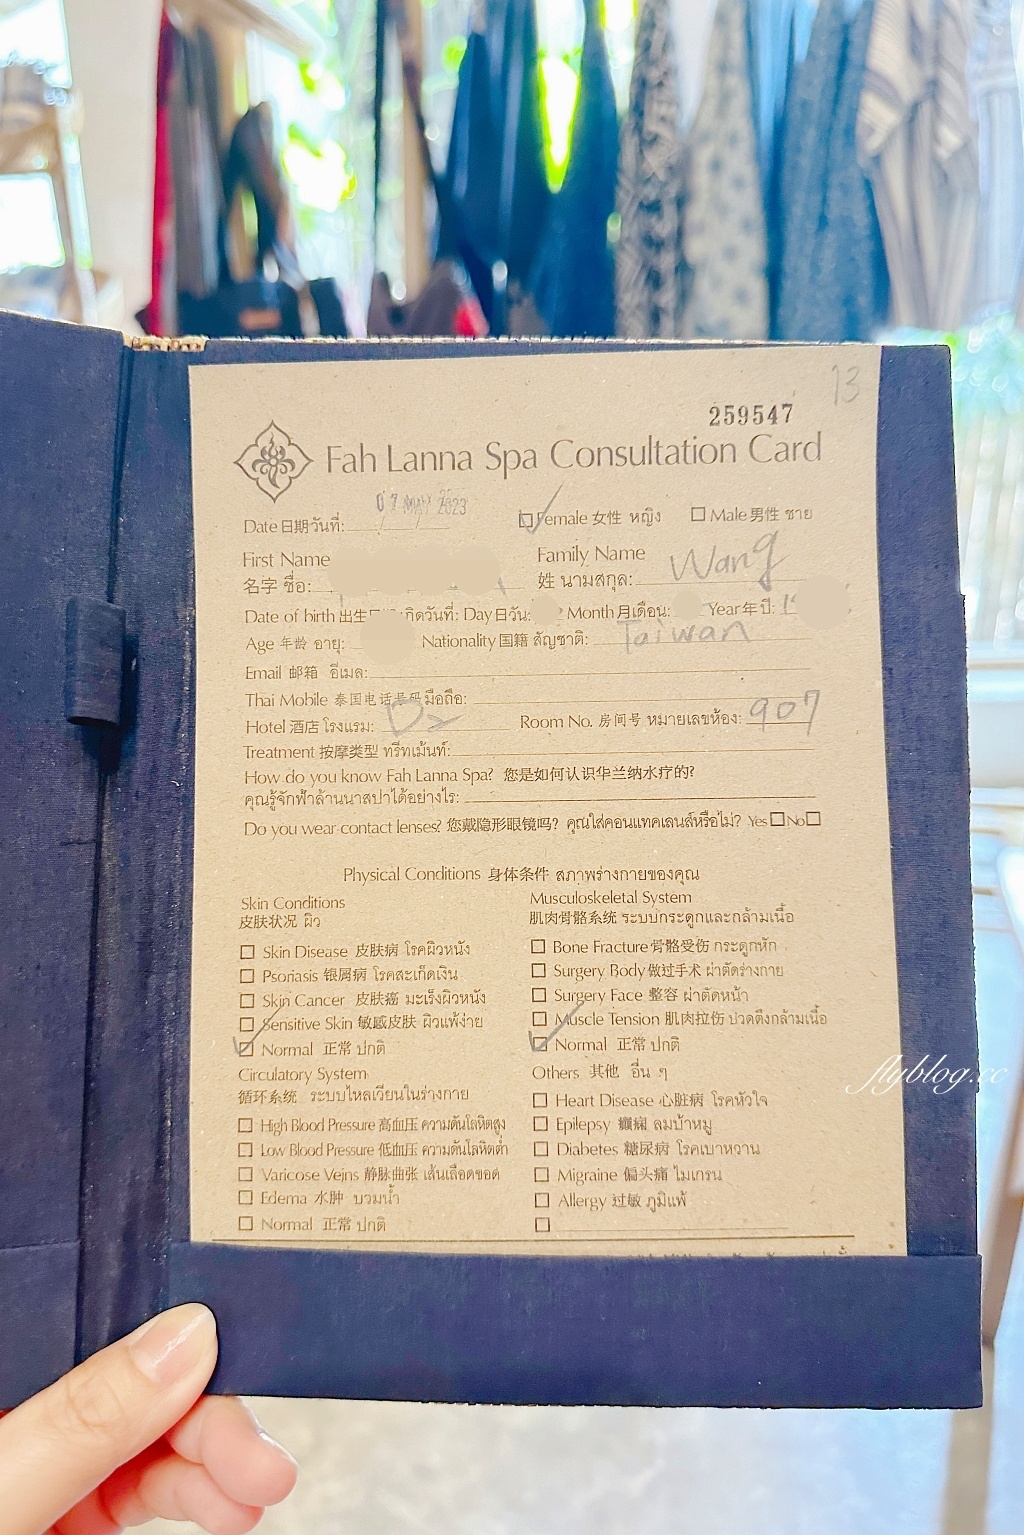 13
259547
Fah Lanna Spa Consultation Card
Date日期วันที่: 07 MAY 2023 ☐ Female 女性 หญิง ☐ Male 男性 ชาย
First Name Family Name
名字 ชื่อ: 姓 นามสกุล: Wang
Date of birth 出生 เกิดวันที่: Day日วัน: Month月เดือน: Year年ปี:
Age 年龄 อายุ: Nationality国籍 สัญชาติ: Taiwan
Email 邮箱 อีเมล:
Thai Mobile 泰国电话号码 มือถือ:
Hotel 酒店 โรงแรม: D2 Room No. 房间号 หมายเลขห้อง: 907
Treatment 按摩类型 ทรีทเม้นท์:
How do you know Fah Lanna Spa? 您是如何认识华兰纳水疗的?
คุณรู้จักฟ้าล้านนาสปาได้อย่างไร:
Do you wear contact lenses? 您戴隐形眼镜吗? คุณใส่คอนแทคเลนส์หรือไม่? Yes ☐ No ☐
Physical Conditions 身体条件 สภาพร่างกายของคุณ
Skin Conditions
皮肤状况 ผิว
☐ Skin Disease 皮肤病 โรคผิวหนัง
☐ Psoriasis 银屑病 โรคสะเก็ดเงิน
☐ Skin Cancer 皮肤癌 มะเร็งผิวหนัง
☐ Sensitive Skin 敏感皮肤 ผิวแพ้ง่าย
☑ Normal 正常 ปกติ
Circulatory System
循环系统 ระบบไหลเวียนในร่างกาย
☐ High Blood Pressure 高血压 ความดันโลหิตสูง
☐ Low Blood Pressure 低血压 ความดันโลหิตต่ำ
☐ Varicose Veins 静脉曲张 เส้นเลือดขอด
☐ Edema 水肿 บวมน้ำ
☐ Normal 正常 ปกติ
Musculoskeletal System
肌肉骨骼系统 ระบบกระดูกและกล้ามเนื้อ
☐ Bone Fracture 骨骼受伤 กระดูกหัก
☐ Surgery Body 做过手术 ผ่าตัดร่างกาย
☐ Surgery Face 整容 ผ่าตัดหน้า
☐ Muscle Tension 肌肉拉伤 ปวดตึงกล้ามเนื้อ
☑ Normal 正常 ปกติ
Others 其他 อื่น ๆ
☐ Heart Disease 心脏病 โรคหัวใจ
☐ Epilepsy 癫痫 ลมบ้าหมู
☐ Diabetes 糖尿病 โรคเบาหวาน
☐ Migraine 偏头痛 ไมเกรน
☐ Allergy 过敏 ภูมิแพ้
☐
flyblog.cc